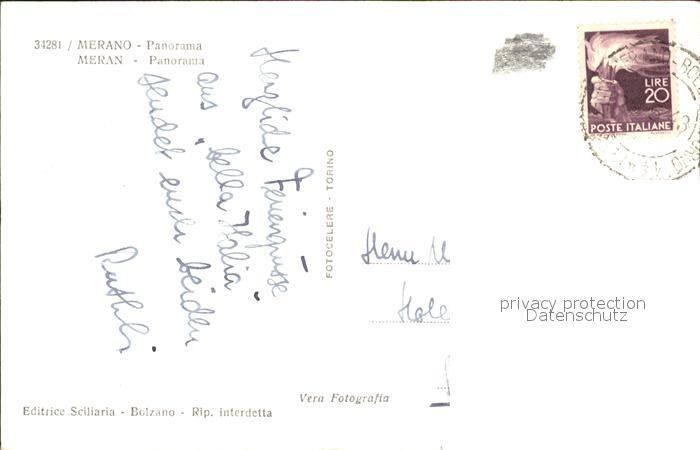 34281 / MERANO - Panorama
MERAN - Panorama
Herzliche Feriengrüsse
aus "bella Italia"
sendet euch beiden
Ruthli
FOTOCELERE - TORINO
LIRE
20
POSTE ITALIANE
Herrn
privacy protection
Datenschutz
Vera Fotografia
Editrice Sciliaria - Bolzano - Rip. interdetta